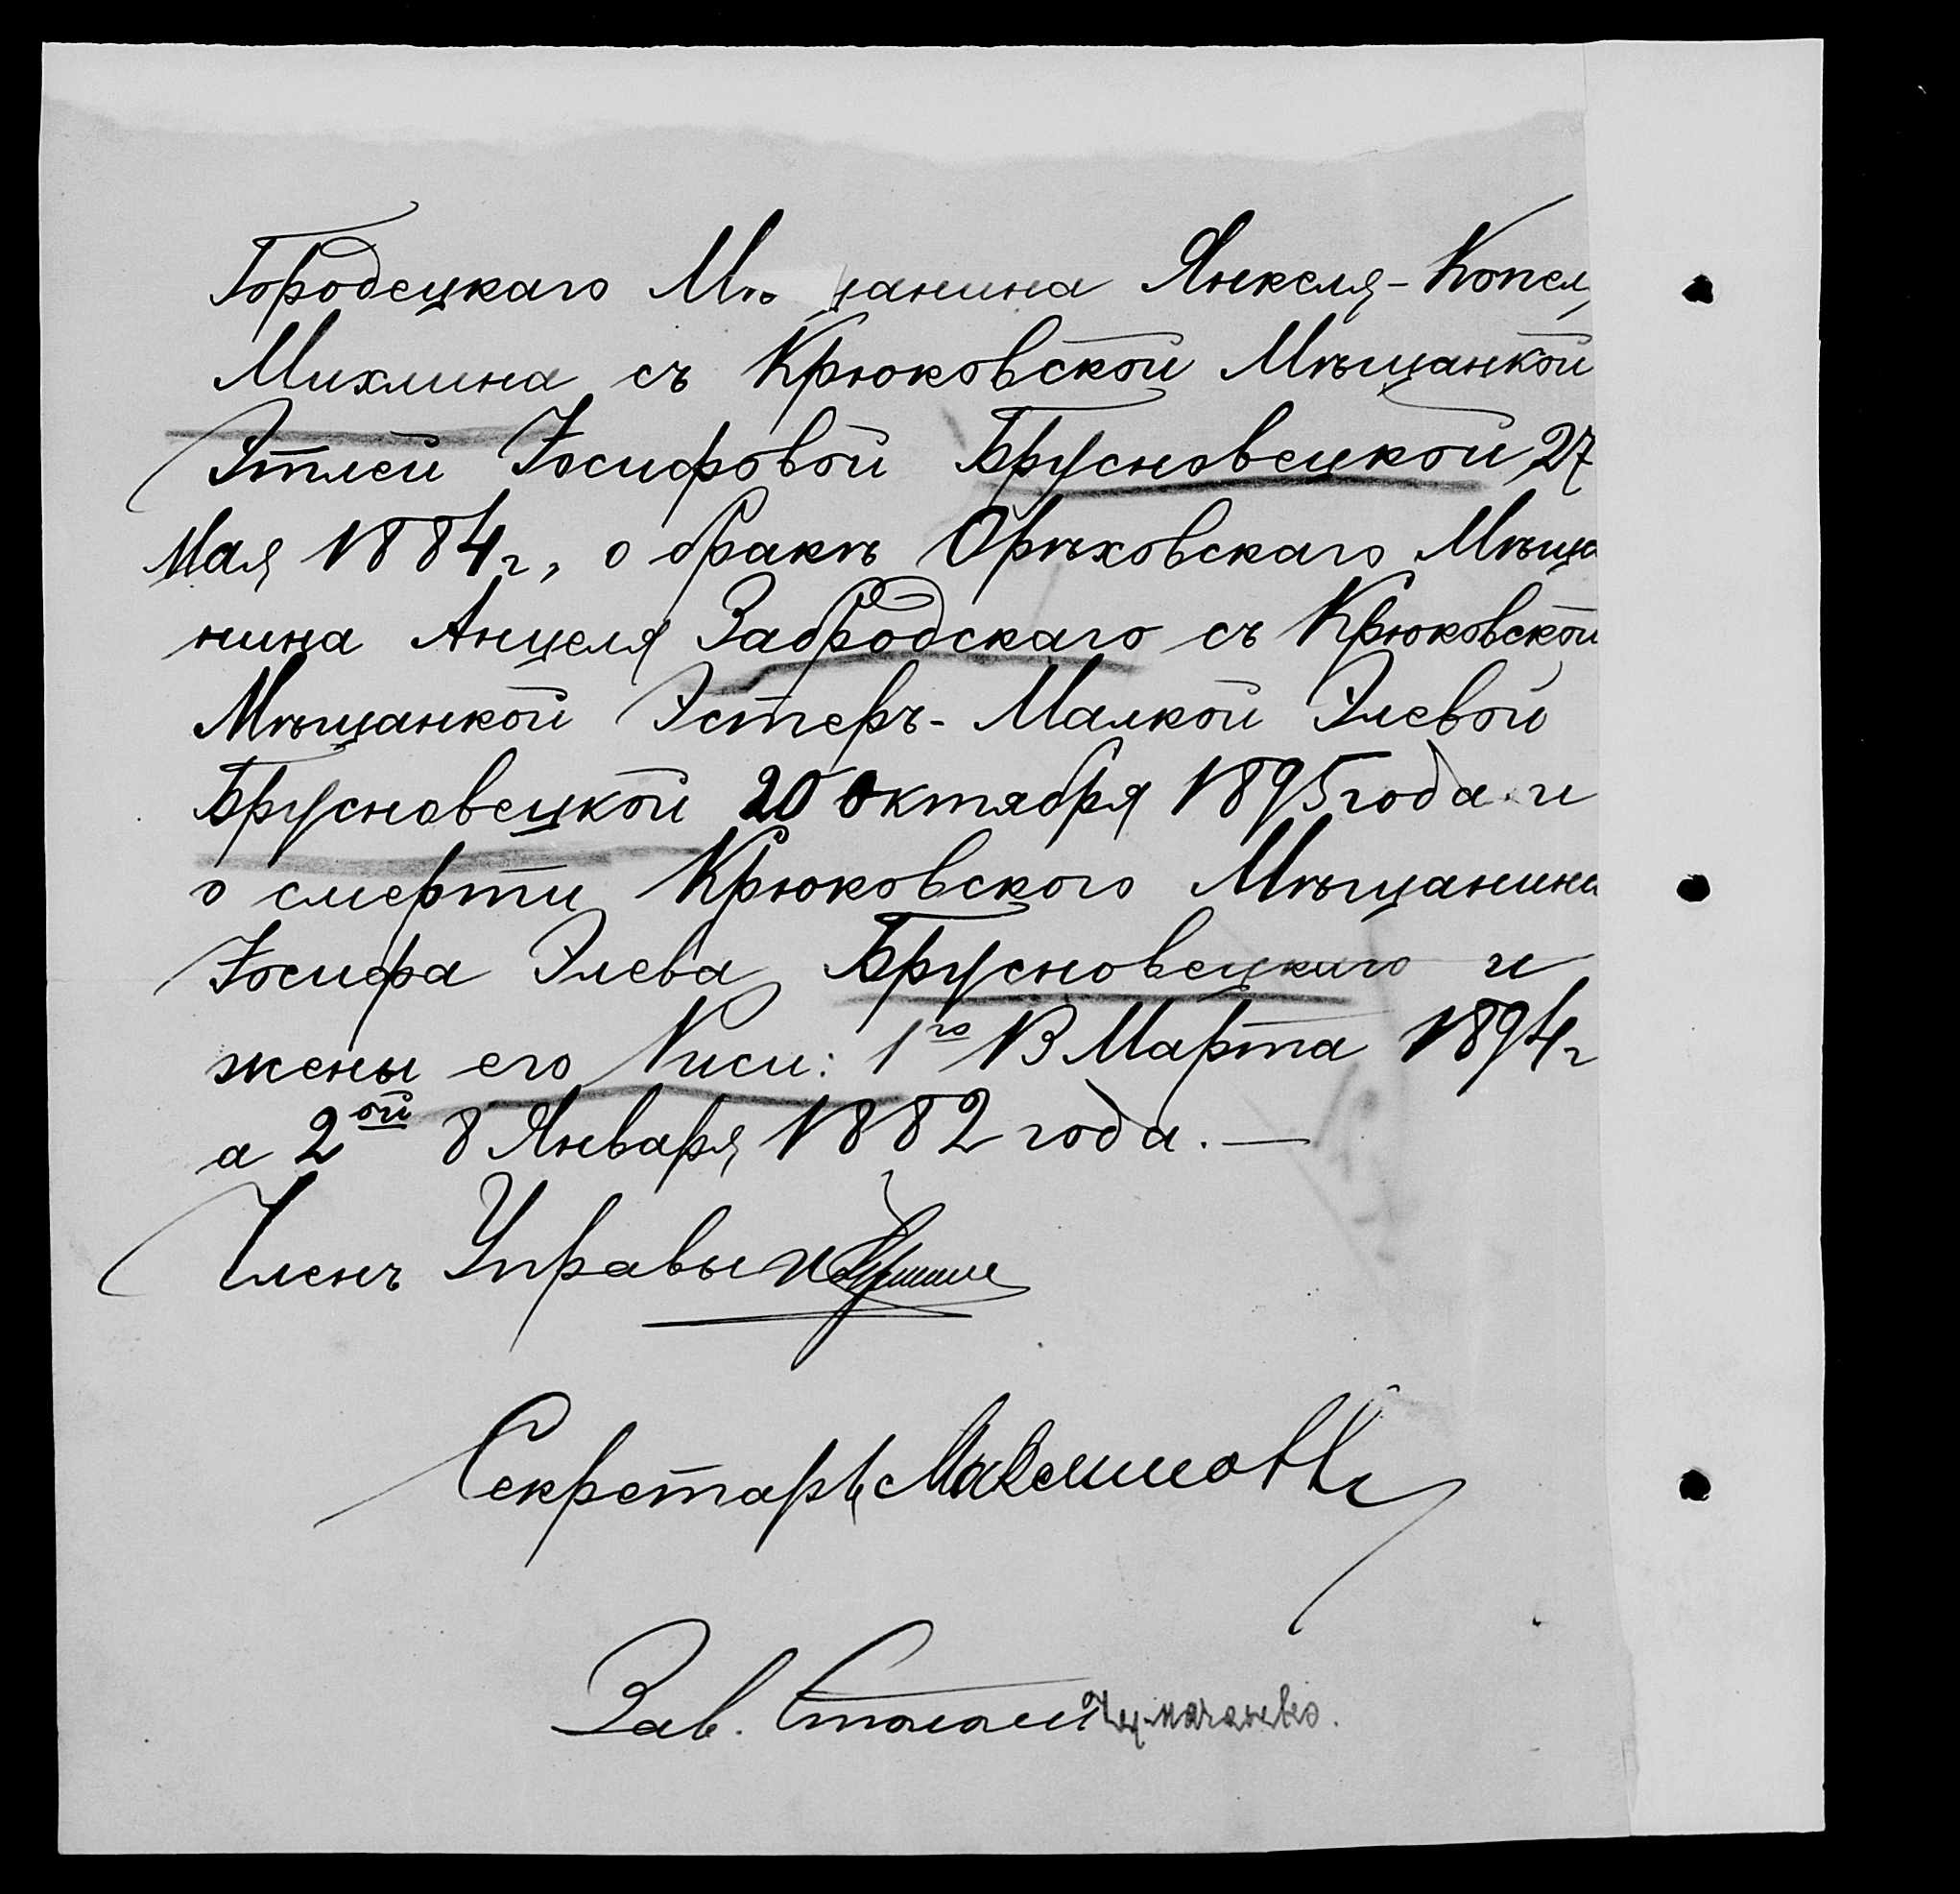 Городецкаго Мѣщанина Янкеля-Копел
Михлина съ Крюковской Мѣщанкой
Этлей Іосифовой Брусновецкой 27
Мая 1884 г., о бракѣ Орѣховскаго Мѣща
нина Анцеля Забродскаго съ Крюковской
Мѣщанкой Эстеръ-Малкой Элевой
Брусновецкой 20 Октября 1895 года и
о смерти Крюковского Мѣщанина
Іосифа Элева Брусновецкаго и
жены его Риси: 1го 13 Марта 1894 г
а 2ой 8 Января 1882 года. —
Членъ Управы
Секретарь Максимовъ
Зав. Столомъ